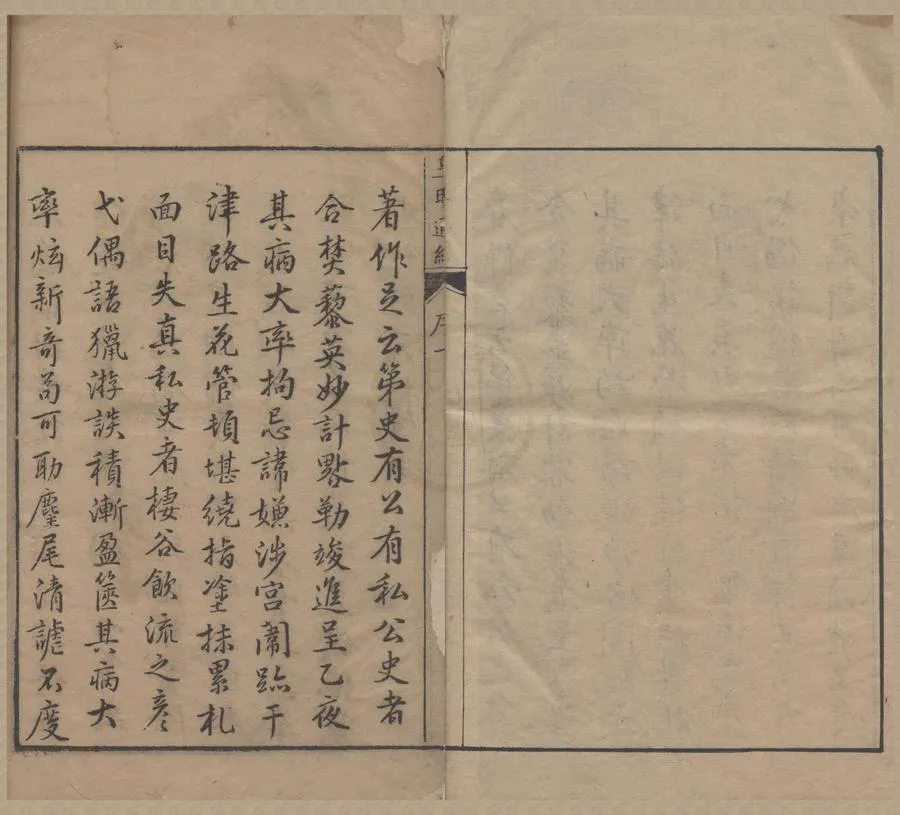 皇明通紀
序一
著作足云第史有公有私公史者
合焚藜英妙計晷勒竣進呈乙夜
其病大率拘忌諱嫌涉宮闈跡干
津路生花管頓堪繞指塗抹累札
面目失真私史者棲谷飲流之彦
弋偶語獵游談積漸盈篋其病大
率炫新奇苟可助麈尾清謔不度